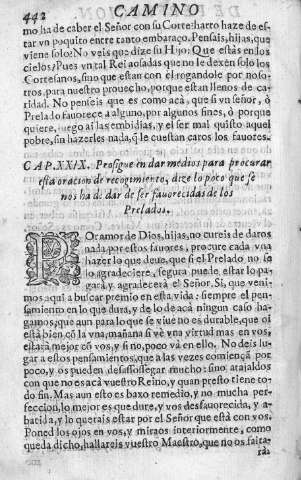 442 CAMINO
mo ha de caber el Señor con su Corte: harto haze de es-
tar vn poquito entre tanto embaraço. Pensais, hijas, que
viene solo? No veis que dize su Hijo: Que estàs en los
cielos? Pues vn tal Rei aosadas que no le dexen solo los
Cortesanos, sino que estàn con èl rogandole por noso-
tros para nuestro prouecho, porque estan llenos de ca-
ridad. No penseis que es como acà, que si vn señor, ò
Prelado fauorece a alguno, por algunos fines, ò porque
quiere, luego ai las embidias, y el ser mal quisto aquel
pobre, sin hazerles nada, q̃ le cuestan caros los fauores.
CAP. XXIX. Prosigue en dar medios para procurar
esta oracion de recogimiento, dize lo poco que se
nos ha de dar de ser fauorecidas de los
Prelados.
POr amor de Dios, hijas, no cureis de daros
nada por estos fauores, procure cada vna
hazer lo que deue, que si el Prelado no se
lo agradeciere, segura puede estar lo pa-
garà, y agradecerà el Señor. Sì, que veni-
mos aqui a buscar premio en esta vida: siempre el pen-
samiento en lo que dura, y de lo de acà ningun caso ha-
gamos, que aun para lo que se viue no es durable, que oi
està bien cõ la vna, mañana si vè vna virtud mas en vos,
estarà mejor cõ vos, y si no, poco và en ello. No deis lu-
gar a estos pensamientos, que a las vezes comiençã por
poco, y os pueden desassossegar mucho: sino atajaldos
con que no es acà vuestro Reino, y quan presto tiene to-
do fin. Mas aun esto es baxo remedio, y no mucha per-
feccion, lo mejor es que dure, y vos desfauorecida, y a-
batida, y lo querais estar por el Señor que està con vos.
Poned los ojos en vos, y miraos interiormente, como
queda dicho, hallareis vuestro Maestro, que no os falta-
rà;